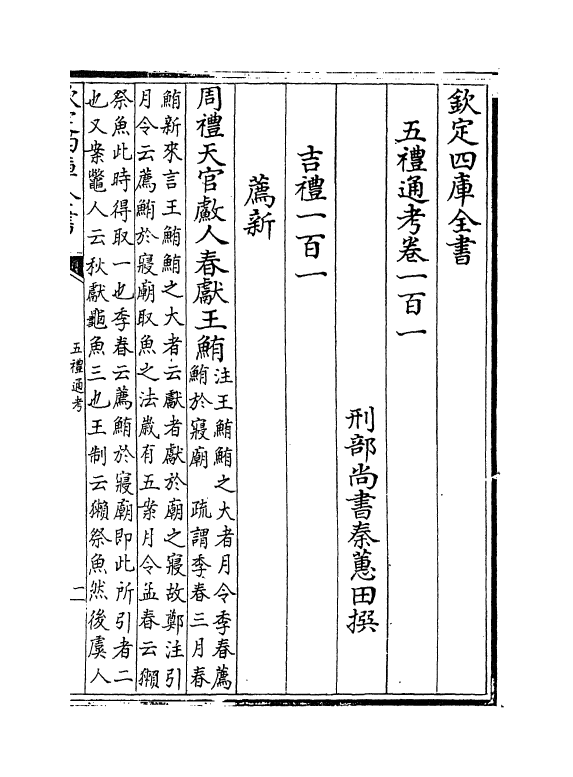 欽定四庫全書
五禮通考卷一百一
刑部尚書秦蕙田撰
吉禮一百一
薦新
周禮天官䱷人春獻王鮪
注王鮪鮪之大者月令季春薦
鮪於寢廟 疏謂季春三月春
鮪新來言王鮪鮪之大者云獻者獻於廟之寢故鄭注引
月令云薦鮪於寢廟取魚之法歲有五案月令孟春云獺
祭魚此時得取一也季春云薦鮪於寢廟即此所引者二
也又案鼈人云秋獻龜魚三也王制云獺祭魚然後虞人
五禮通考